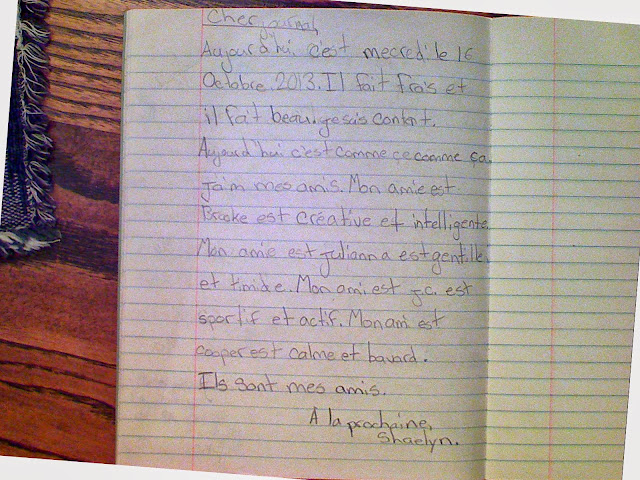 Cher journal,
Aujourd'hui c'est mecredi le 16
Octobre.2013. Il fait frais et
il fait beau. je suis content.
Aujourd'hui c'est comme ce comme ça.
j'aim mes amis. Mon amie est
Brooke est créative et intelligente.
Mon amie est julianna est gentille.
et timide. Mon ami est j.c. est
sportif et actif. Mon ami est
cooper est calme et bavard.
Ils sont mes amis.
À la prochaine,
Shaelyn.